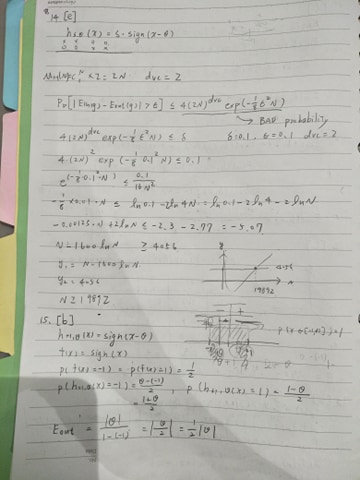 14 [e]
h_{s,θ}(x) = s · sign(x-θ)
x x o x
o o x x
N × 2 = 2N   dvc = 2
Pr[|Ein(g) - Eout(g)| > ε] ≤ 4(2N)^{dvc} exp(-1/8 ε² N)
→ BAD probability
4(2N)^{dvc} exp(-1/8 ε² N) ≤ δ   δ=0.1, ε=0.1   dvc = 2
4·(2N)² exp(-1/8 · 0.1² · N) ≤ 0.1
e^{(-1/8 · 0.1² · N)} ≤ 0.1/16N²
-1/8 × 0.01 · N ≤ ln 0.1 - 2 ln 4N = ln 0.1 - 2 ln 4 - 2 · ln N
-0.00125·N + 2 ln N ≤ -2.3 - 2.77 = -5.07
N - 1600 ln N ≥ 4056
y₁ = N - 1600 ln N
y₂ = 4056
N ≥ 19892
19892
15. [b]
h_{+1,θ}(x) = sign(x-θ)
f(x) = sign(x)
p(f(x) = -1) = p(f(x) = 1) = 1/2
p(h_{+1,θ}(x) = -1) = θ-(-1)/2 , p(h_{+1,θ}(x) = 1) = 1-θ/2
= 1+θ/2
Eout = |θ|/1-(-1) = |θ/2| = 1/2 |θ|